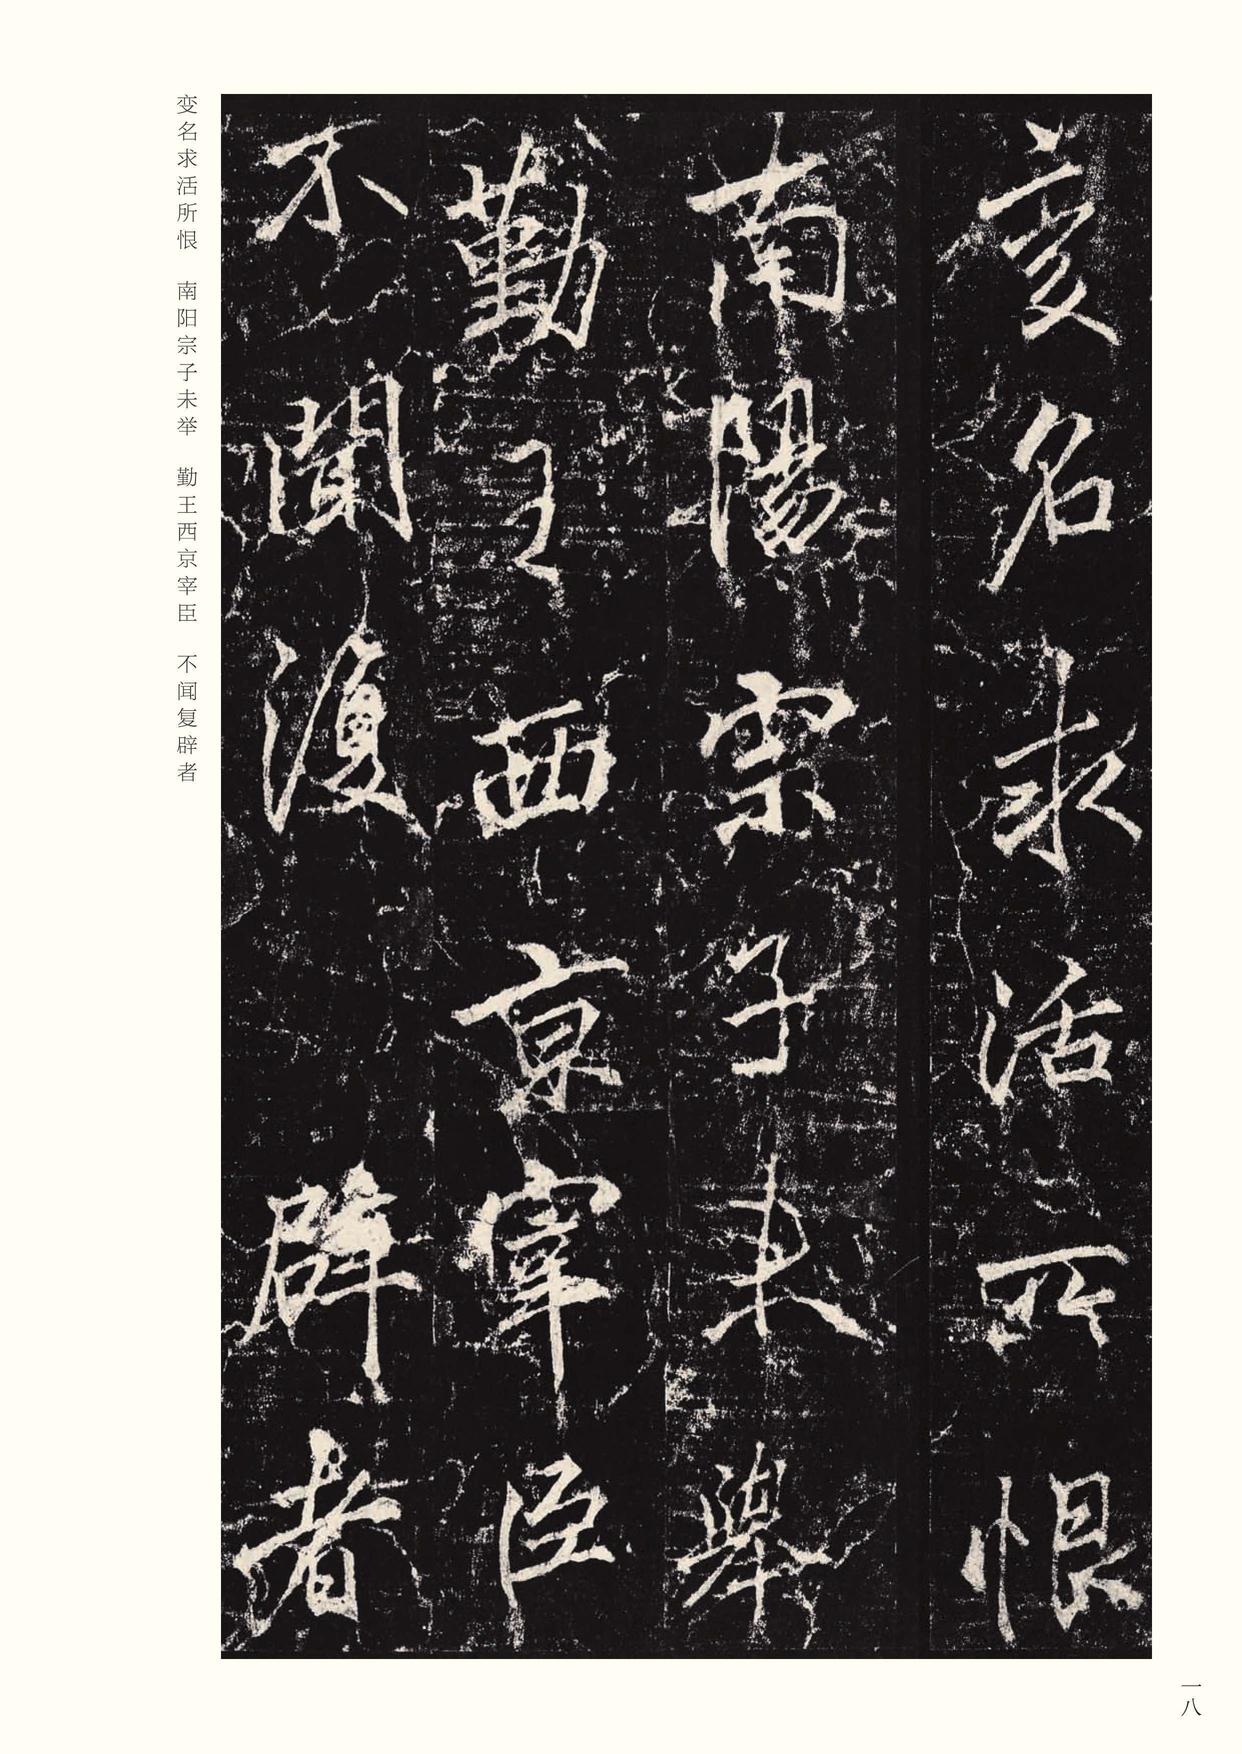 变名求活所恨
南陽宗子未舉
勤王西京宰臣
不聞復辟者
变名求活所恨　南阳宗子未举　勤王西京宰臣　不闻复辟者
一八